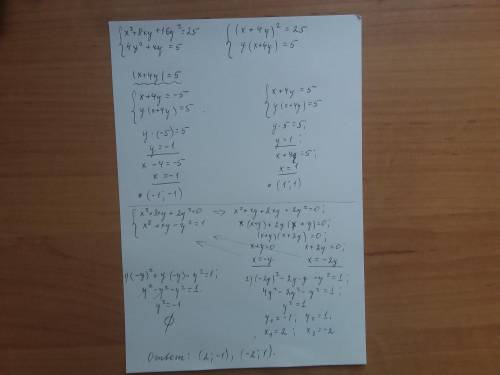 { x² + 8xy + 16y² = 25      { (x + 4y)² = 25
{ 4y² + xy = 5      { y(x+4y) = 5
|x+4y| = 5
{ x+4y = -5      { x+4y = 5
{ y(x+4y) = 5      { y(x+4y) = 5
y·(-5) = 5      y·5 = 5;
y = -1      y = 1;
x - 4 = -5      x + 4y = 5;
x = -1      x = 1
• (-1; -1)      • (1; 1)
{ x² + 3xy + 2y² = 0 ⇒ x² + xy + 2xy + 2y² = 0;
{ x² + xy - y² = 1      x(x+y) + 2y(x+y) = 0;
(x+y)(x+2y) = 0;
x+y = 0      x + 2y = 0;
x = -y      x = -2y
(-y)² + y·(-y) - y² = 1;      2) (-2y)² - 2y·y - y² = 1;
y² - y² - y² = 1      4y² - 2y² - y² = 1;
y² = -1      y² = 1
∅      y₁ = -1;  y₂ = 1.
x₁ = 2;  x₂ = -2
Ответ: (2; -1), (-2; 1).